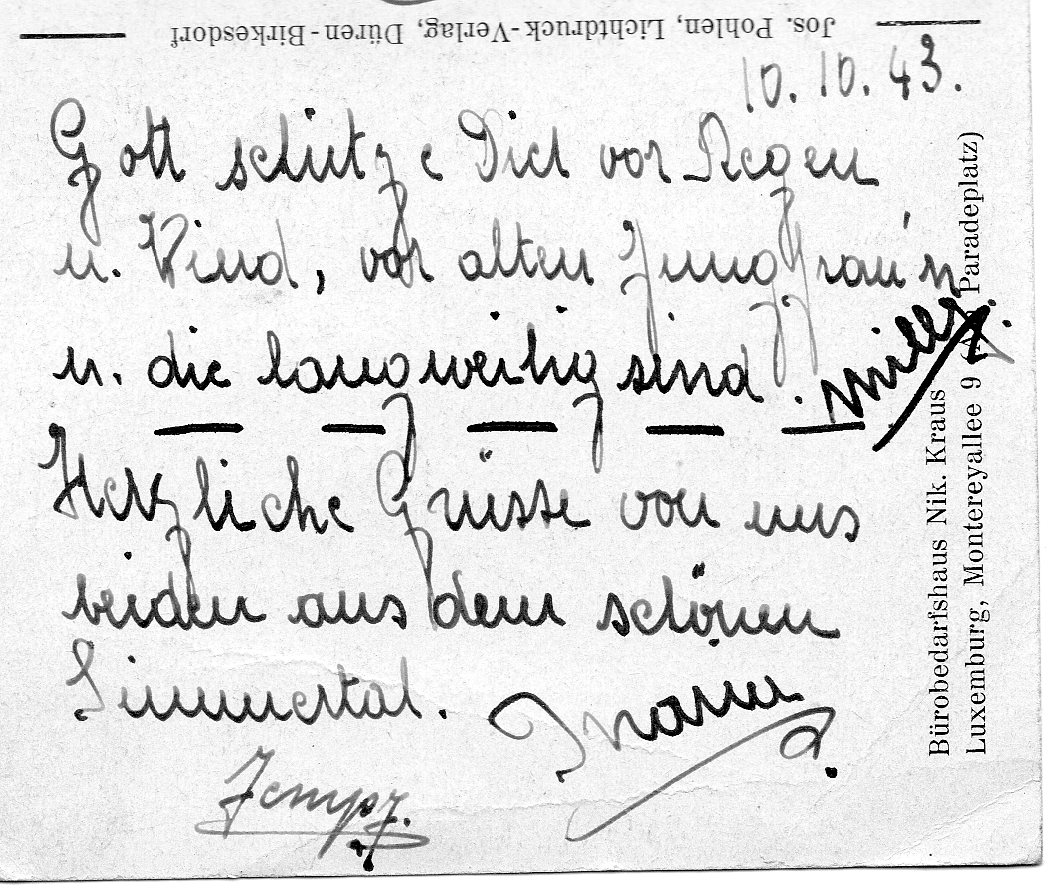 Jos. Pohlen, Lichtdruck-Verlag, Düren-Birkesdorf
10. 10. 43.
Gott schütze Dich vor Regen
u. Wind, vor alten Jungfrau'n
u. die langweilig sind.
Herzliche Grüsse von uns
beiden aus dem schönen
Simmertal.
Jempy.
Bürobedarfshaus Nik. Kraus
Luxemburg, Montereyallee 9 Paradeplatz)